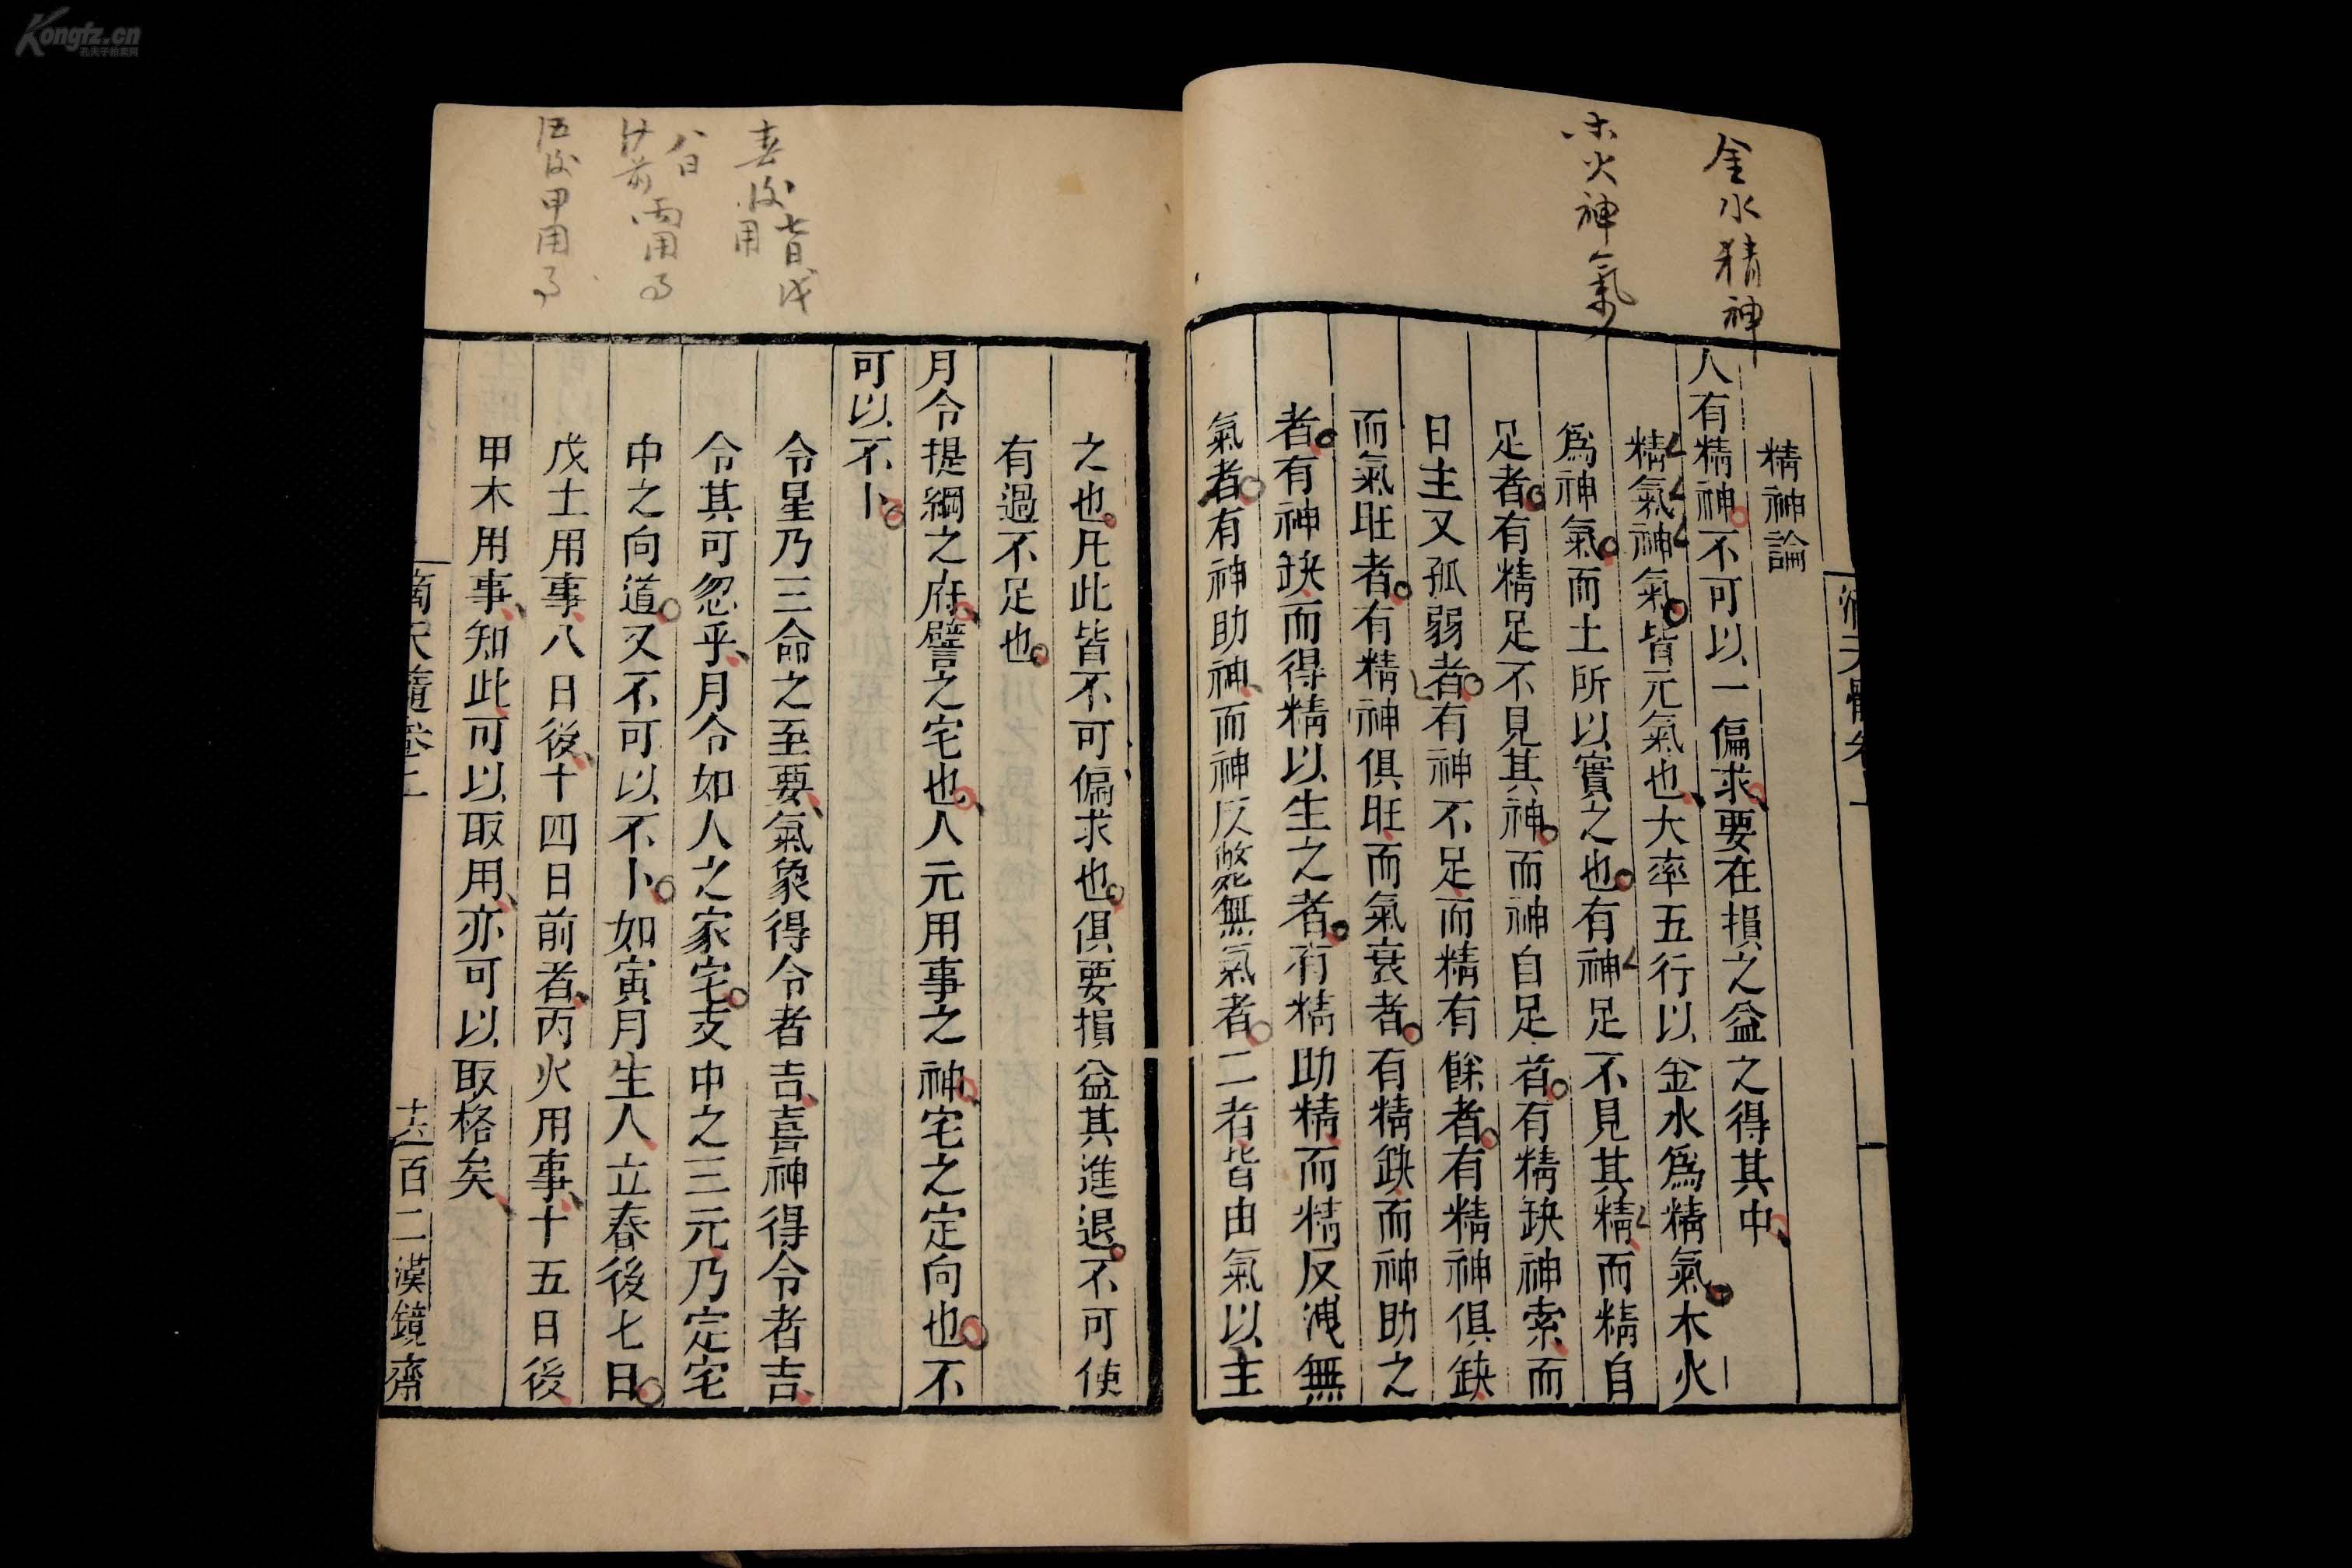 Kongfz.cn
孔夫子拍卖网
金水精神
木火神氣
精神論
人有精神不可以一偏求要在損之益之得其中
精氣神氣皆元氣也大率五行以金水為精氣木火
為神氣而土所以實之也有神足不見其精而精自
足者有精足不見其神而神自足者有精缺神索而
日主又孤弱者有神不足而精有餘者有精神俱缺
而氣旺者有精神俱旺而氣衰者有精缺而神助之
者有神缺而得精以生之者有精助精而精反洩無
氣者有神助神而神反斃無氣者二者皆由氣以主
春後七日戊用
八日
前丙用
後甲用
之也凡此皆不可偏求也俱要損益其進退不可使
有過不足也
月令提綱之府譬之宅也人元用事之神宅之定向也不
可以不卜
令星乃三命之至要氣象得令者吉喜神得令者吉
令其可忽乎月令如人之家宅支中之三元乃定宅
中之向道又不可以不卜如寅月生人立春後七日
戊土用事八日後十四日前者丙火用事十五日後
甲木用事知此可以取用亦可以取格矣
滴天髓卷上
百二漢鏡齋